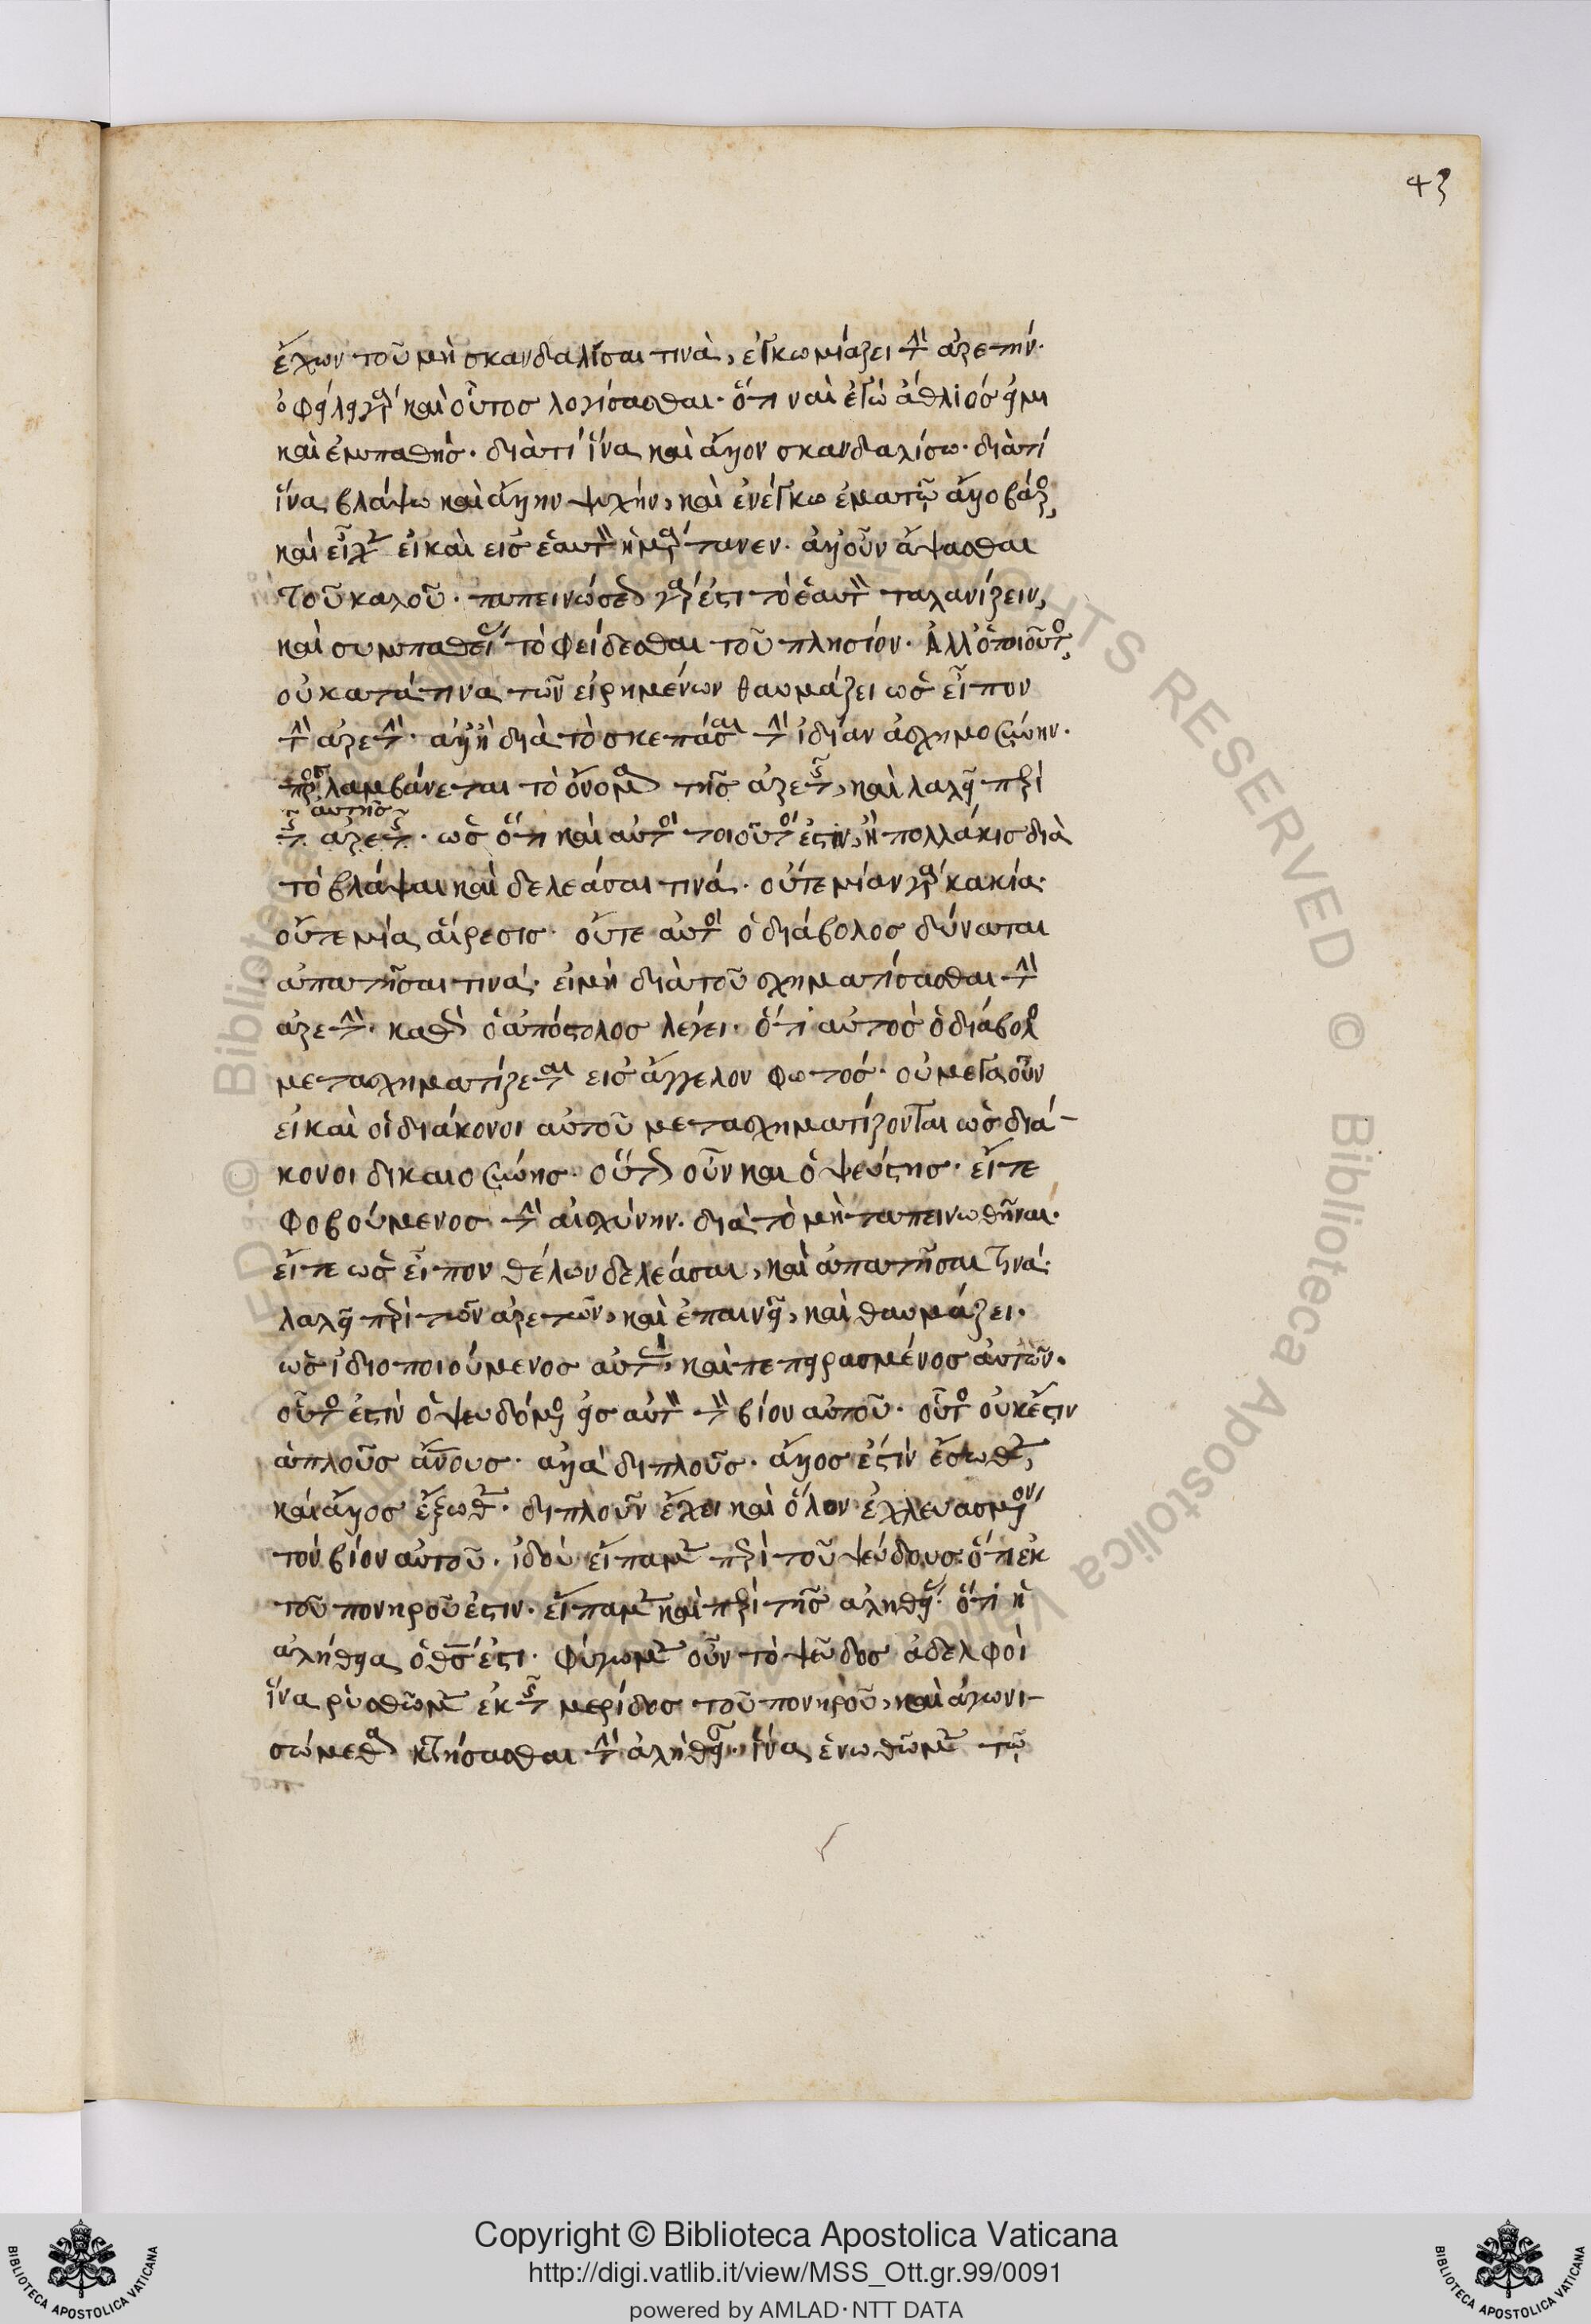 43
ἔχων τοῦ μὴ σκανδαλίσαι τινὰ, ἐγκωμιάζει τὴν ἀρετήν·
ὀφείλει γὰρ καὶ οὗτος λογίσασθαι· ὅτι ναὶ ἐγὼ ἄθλιός εἰμι
καὶ ἐμπαθής· διατί ἵνα καὶ ἄλλον σκανδαλίσω· διατί
ἵνα βλάψω καὶ ἄλλην ψυχήν, καὶ ἐνέγκω ἐμαυτῷ ἄλλο βάρος,
καὶ εἰ καὶ εἰς ἑαυτὸν ἡμάρτανεν· ἀλλ' οὖν ἅψασθαι
τοῦ καλοῦ· ταπεινώσεως γάρ ἐστι τὸ ἑαυτὸν ταλανίζειν,
καὶ συμπαθείας τὸ φείδεσθαι τοῦ πλησίον· Ἀλλ' ὁ τοιοῦτος,
οὐ κατά τινα τῶν εἰρημένων θαυμάζει ὡς εἶπον
τὴν ἀρετὴν· ἀλλ' ἢ διὰ τὸ σκεπάσαι τὴν ἰδίαν ἀσχημοσύνην·
προσλαμβάνεται τὸ ὄνομα τῆς ἀρετῆς, καὶ λαλεῖ περὶ
αὐτῆς
τῆς ἀρετῆς· ὡς ὅτι καὶ αὐτὸς τοιοῦτός ἐστιν, ἢ πολλάκις διὰ
τὸ βλάψαι καὶ δελεάσαι τινά· οὔτε μίαν γὰρ κακία·
οὔτε μία αἵρεσις· οὔτε αὐτὸς ὁ διάβολος δύναται
ἀπατῆσαι τινά· εἰ μὴ διὰ τοῦ σχηματίσασθαι τὴν
ἀρετὴν· καθὼς ὁ ἀπόστολος λέγει· ὅτι αὐτὸς ὁ διάβολος
μετασχηματίζεται εἰς ἄγγελον φωτός· οὐ μέγα οὖν
εἰ καὶ οἱ διάκονοι αὐτοῦ μετασχηματίζονται ὡς διά-
κονοι δικαιοσύνης· οὕτως οὖν καὶ ὁ ψεύστης· εἴτε
φοβούμενος τὴν αἰσχύνην· διὰ τὸ μὴ ταπεινωθῆναι·
εἴτε ὡς εἶπον θέλων δελεάσαι, καὶ ἀπατῆσαι τινά·
λαλεῖ περὶ τῶν ἀρετῶν, καὶ ἐπαινεῖ, καὶ θαυμάζει·
ὡς ἰδιοποιούμενος αὐτὰς, καὶ πεπειρασμένος αὐτῶν·
οὗτός ἐστιν ὁ ψευδόμενος εἰς αὐτὸν τὸν βίον αὐτοῦ· οὗτος οὐκ ἔστιν
ἁπλοῦς ἄνους· ἀλλὰ διπλοῦς· ἄλλος ἐστὶν ἔσωθεν,
καὶ ἄλλος ἔξωθεν· διπλοῦν ἔχει καὶ ὅλον ἐχλευασμένον
τὸν βίον αὐτοῦ· ἰδοὺ εἴπαμεν περὶ τοῦ ψεύδους· ὅτι ἐκ
τοῦ πονηροῦ ἐστιν· εἴπαμεν καὶ περὶ τῆς ἀληθείας· ὅτι ἡ
ἀλήθεια ὁ θς ἐστι· φύγωμεν οὖν τὸ ψεῦδος ἀδελφοὶ
ἵνα ῥυσθῶμεν ἐκ τῆς μερίδος τοῦ πονηροῦ, καὶ ἀγωνι-
σώμεθα κτήσασθαι τὴν ἀλήθειαν· ἵνα ἑνωθῶμεν τῷ
Copyright © Biblioteca Apostolica Vaticana
http://digi.vatlib.it/view/MSS_Ott.gr.99/0091
powered by AMLAD·NTT DATA